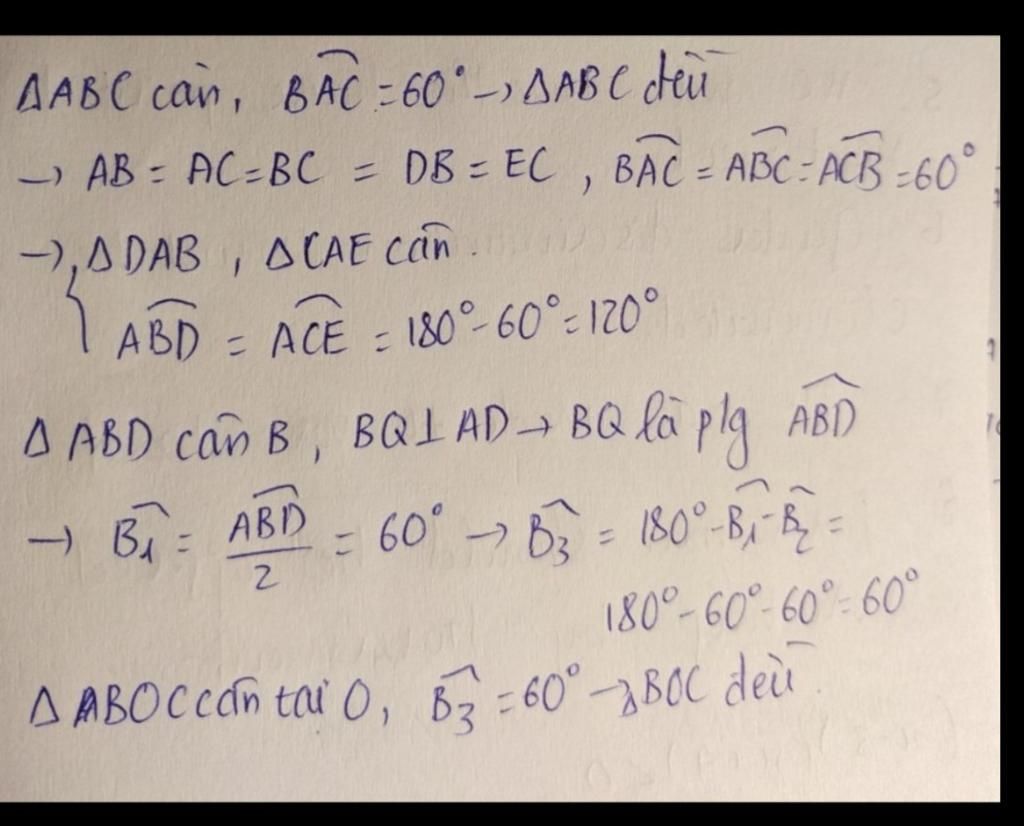 ΔABC cân, BAC = 60° → ΔABC đều
→ AB = AC = BC = DB = EC , BAC = ABC = ACB = 60°
→ ΔDAB , ΔCAE cân .
ABD = ACE = 180° - 60° = 120°
Δ ABD cân B , BQ ⊥ AD → BQ là p/g ABD
→ B1 = ABD/2 = 60° → B3 = 180° - B1 - B2 =
180° - 60° - 60° = 60°
Δ BOC cân tại O, B3 = 60° → ΔBOC đều